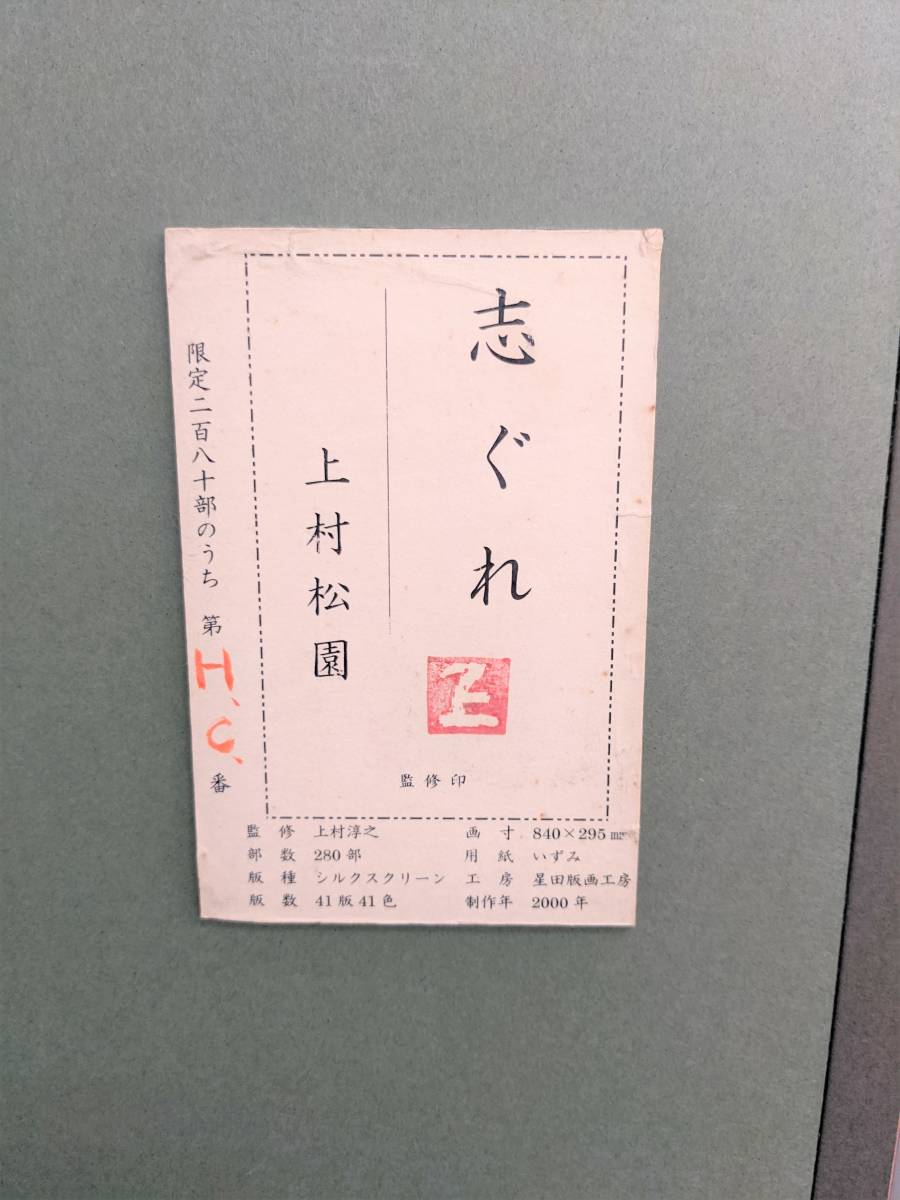 志ぐれ
上村松園
監修印
限定二百八十部のうち 第H.C.番
監修 上村淳之
部数 280部
版種 シルクスクリーン
版数 41版41色
画寸 840×295㎜
用紙 いずみ
工房 星田版画工房
制作年 2000年